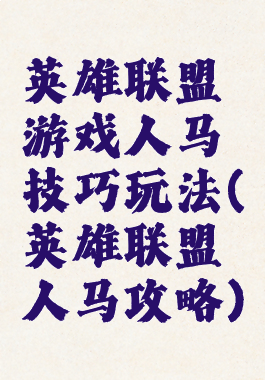 英雄联盟
游戏人马
技巧玩法(
英雄联盟
人马攻略)